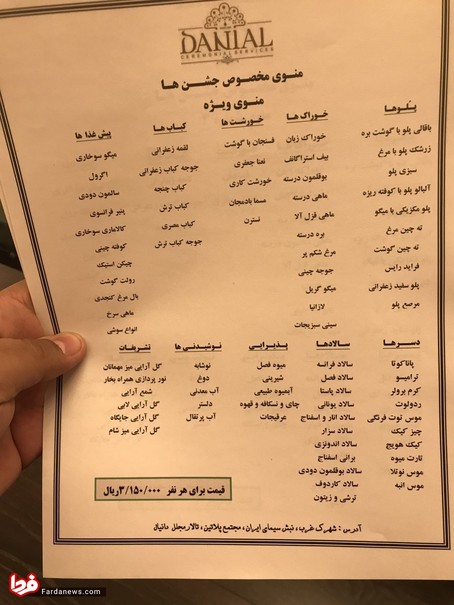 DANIAL
CEREMONIAL SERVICES
منوی مخصوص جشن ها
منوی ویژه
پلوها
باقالی پلو با گوشت بره
زرشک پلو با مرغ
سبزی پلو
آلبالو پلو با کوفته ریزه
پلو مکزیکی با میگو
ته چین مرغ
ته چین گوشت
فراید رایس
پلو سفید زعفرانی
مرصع پلو
خوراک ها
خوراک زبان
بیف استراگانف
بوقلمون درسته
ماهی درسته
ماهی قزل آلا
بره درسته
مرغ شکم پر
جوجه چینی
میگو گریل
لازانیا
سینی سبزیجات
خورشت ها
فسنجان با گوشت
نعنا جعفری
خورشت کاری
مسما بادمجان
نسترن
کباب ها
لقمه زعفرانی
جوجه کباب زعفرانی
کباب چنجه
کباب ترش
کباب مصری
جوجه کباب ترش
پیش غذا ها
میگو سوخاری
اگرول
سالمون دودی
پنیر فرانسوی
کالاماری سوخاری
کوفته چینی
چیکن استیک
رولت گوشت
بال مرغ کنجدی
ماهی سرخ
انواع سوشی
دسرها
پاناکوتا
ترامیسو
کرم برولر
ردولوت
موس توت فرنگی
چیز کیک
کیک هویج
تارت میوه
موس نوتلا
موس انبه
سالادها
سالاد فرانسه
سالاد فصل
سالاد پاستا
سالاد یونانی
سالاد انار و اسفناج
سالاد سزار
سالاد اندونزی
برانی اسفناج
سالاد بوقلمون دودی
سالاد کاردوف
ترشی و زیتون
پذیرایی
میوه فصل
شیرینی
آبمیوه طبیعی
چای و نسکافه و قهوه
عرقیجات
نوشیدنی ها
نوشابه
دوغ
آب معدنی
دلستر
آب پرتقال
تشریفات
گل آرایی میز مهمانان
نور پردازی همراه بخار
شمع آرایی
گل آرایی لابی
گل آرایی جایگاه
گل آرایی میز شام
قیمت برای هر نفر ۳/۱۵۰/۰۰۰ریال
آدرس : شهرک غرب، نبش سیمای ایران، مجتمع پلاتین، تالار مجلل دانیال
فردا
Fardanews.com